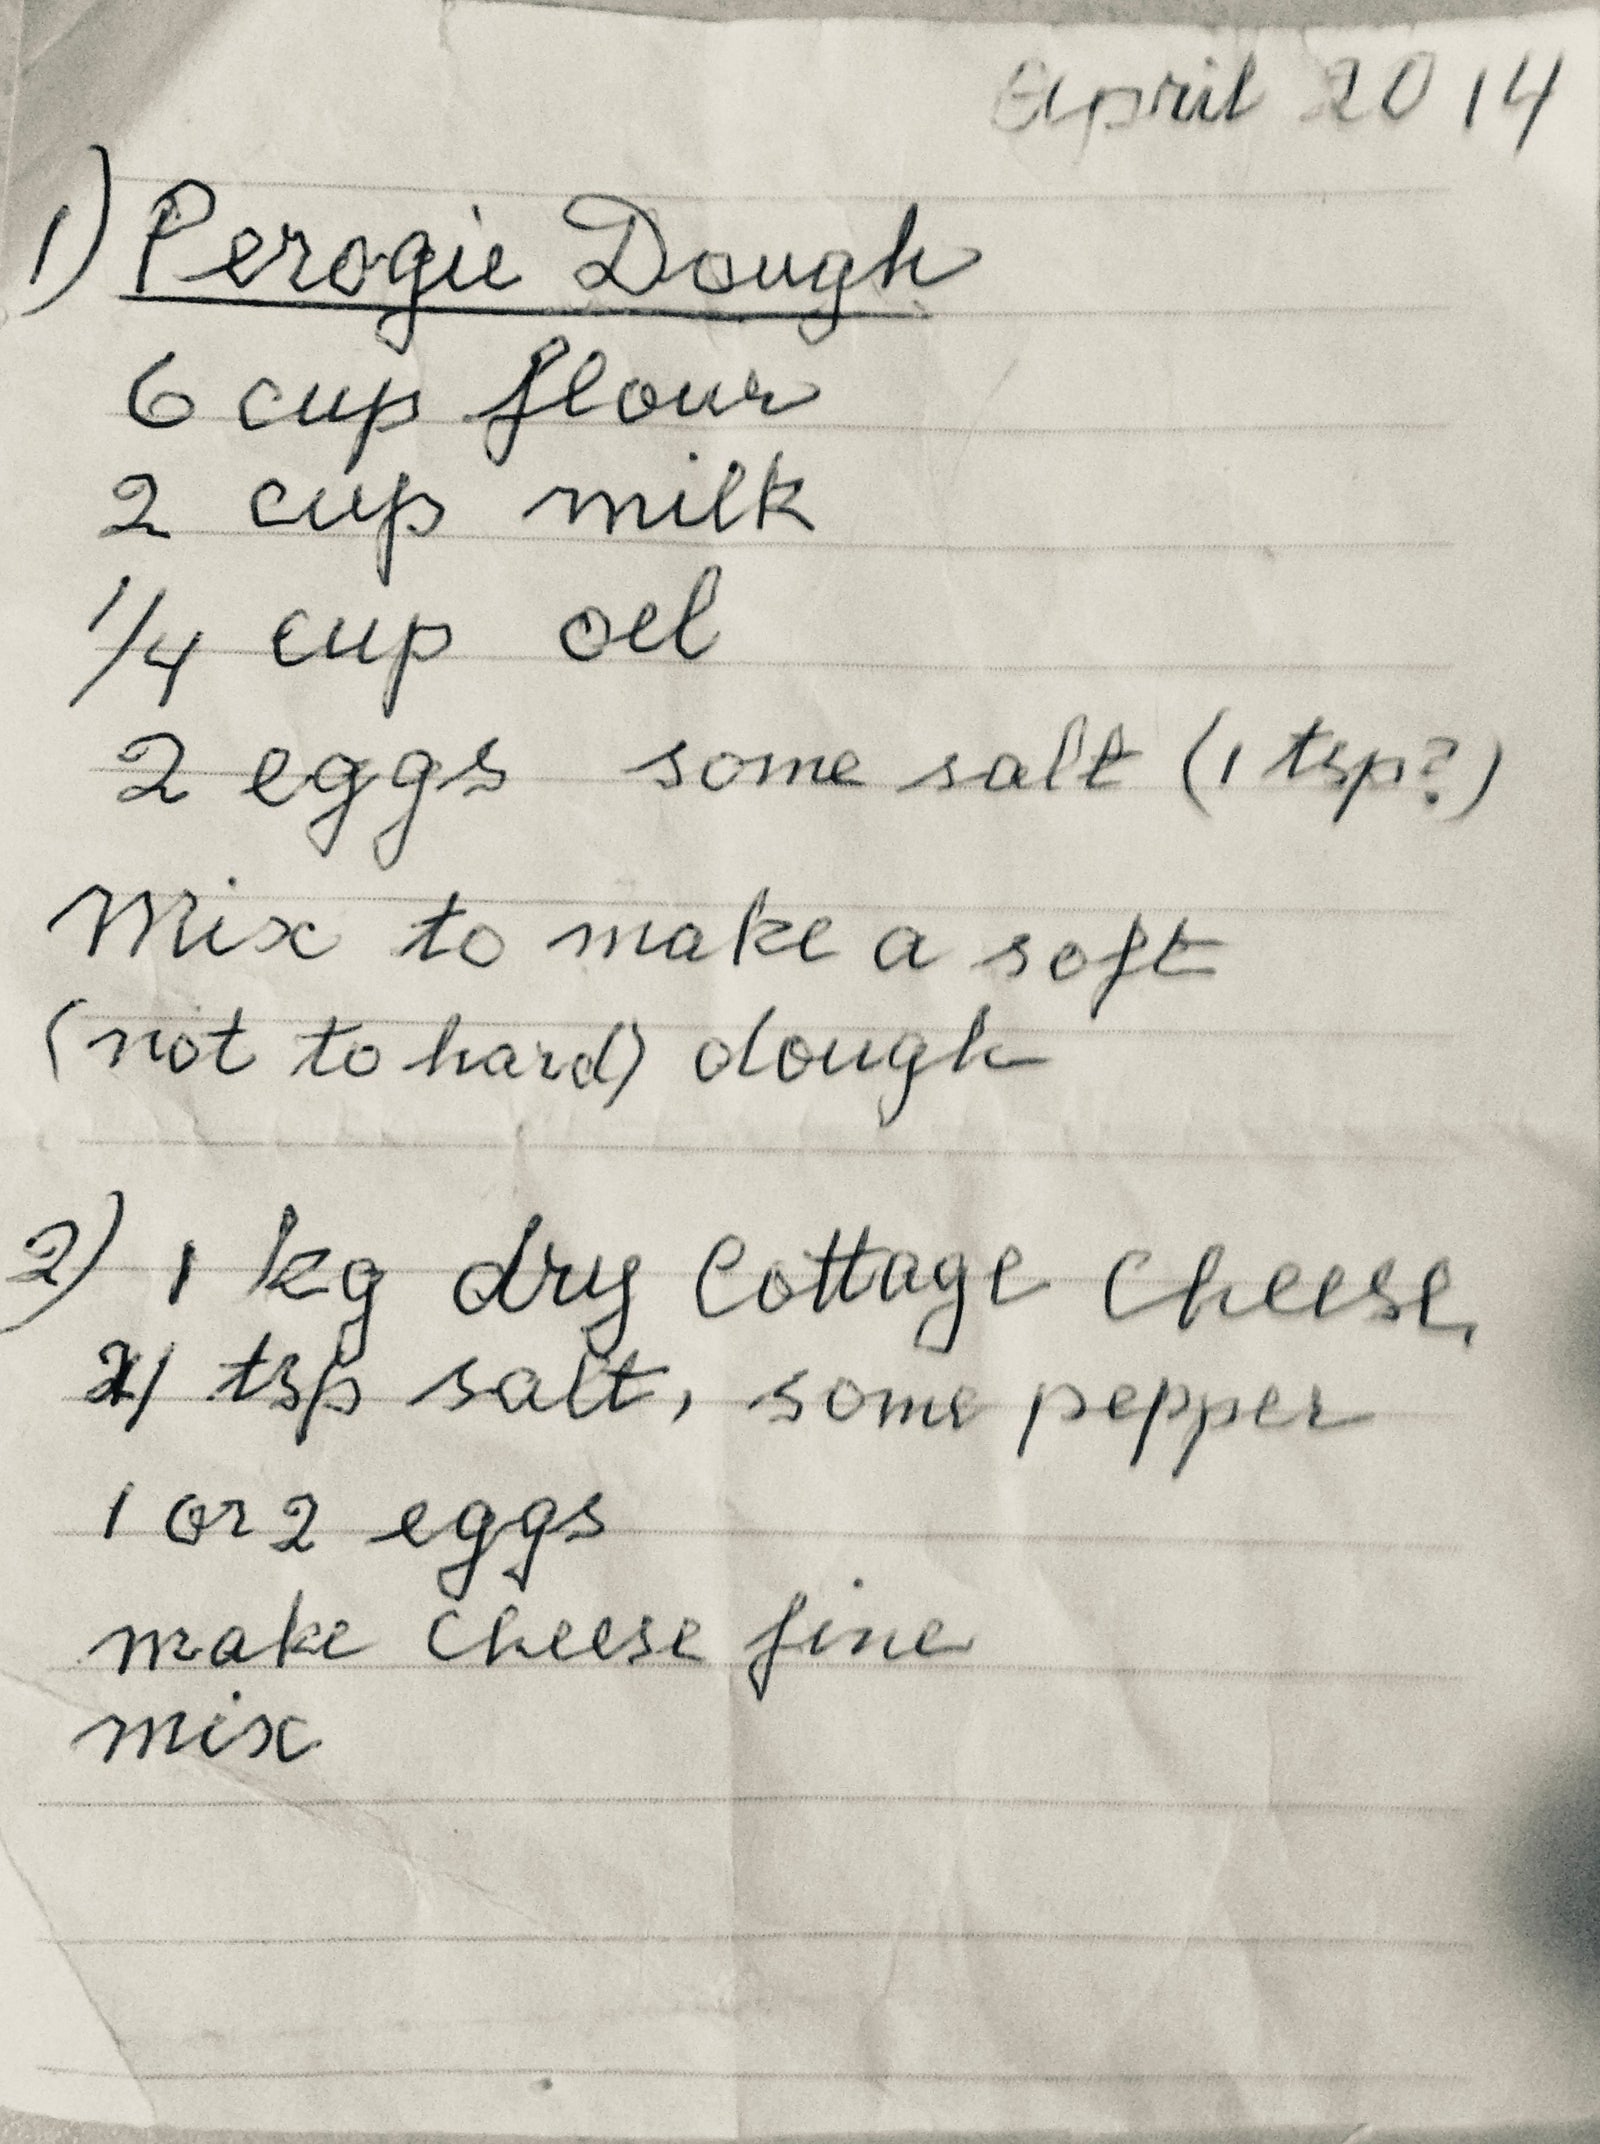 April 2014
1) Perogie Dough
6 cup flour
2 cup milk
1/4 cup oel
2 eggs some salt (1 tsp?)
Mix to make a soft
(not to hard) dough
2) 1 kg dry Cottage Cheese,
1 tsp salt, some pepper
1 or 2 eggs
make Cheese fine
mix